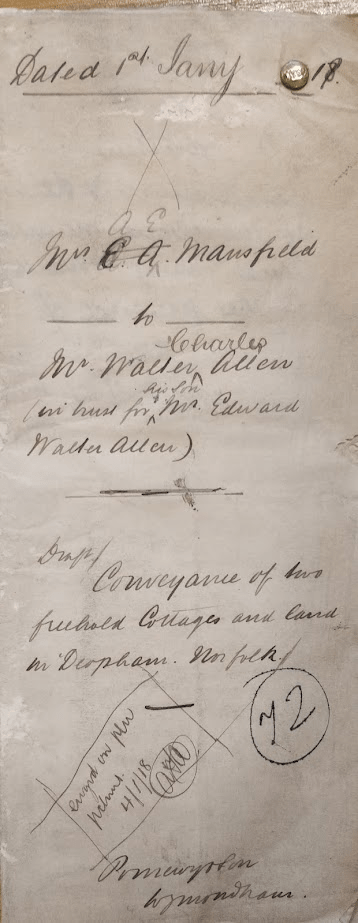 Dated 1st Jany 18.
A E.
Mrs E. A. Mansfield
to
Charles
Mr. Walter Allen
his son
(in trust for Mr. Edward
Walter Allen)
Draft/
Conveyance of two
freehold Cottages and land
in Deopham. Norfolk/
72
on
4/1/18
Wymondham.